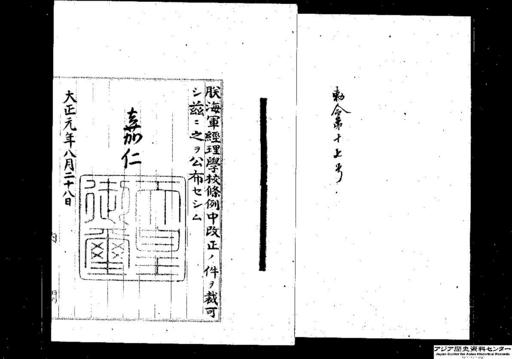 勅令第十七号
朕海軍經理學校條例中改正ノ件ヲ裁可
シ茲ニ之ヲ公布セシム
嘉仁
天皇御璽
大正元年八月二十八日
アジア歴史資料センター
Japan Center for Asian Historical Records